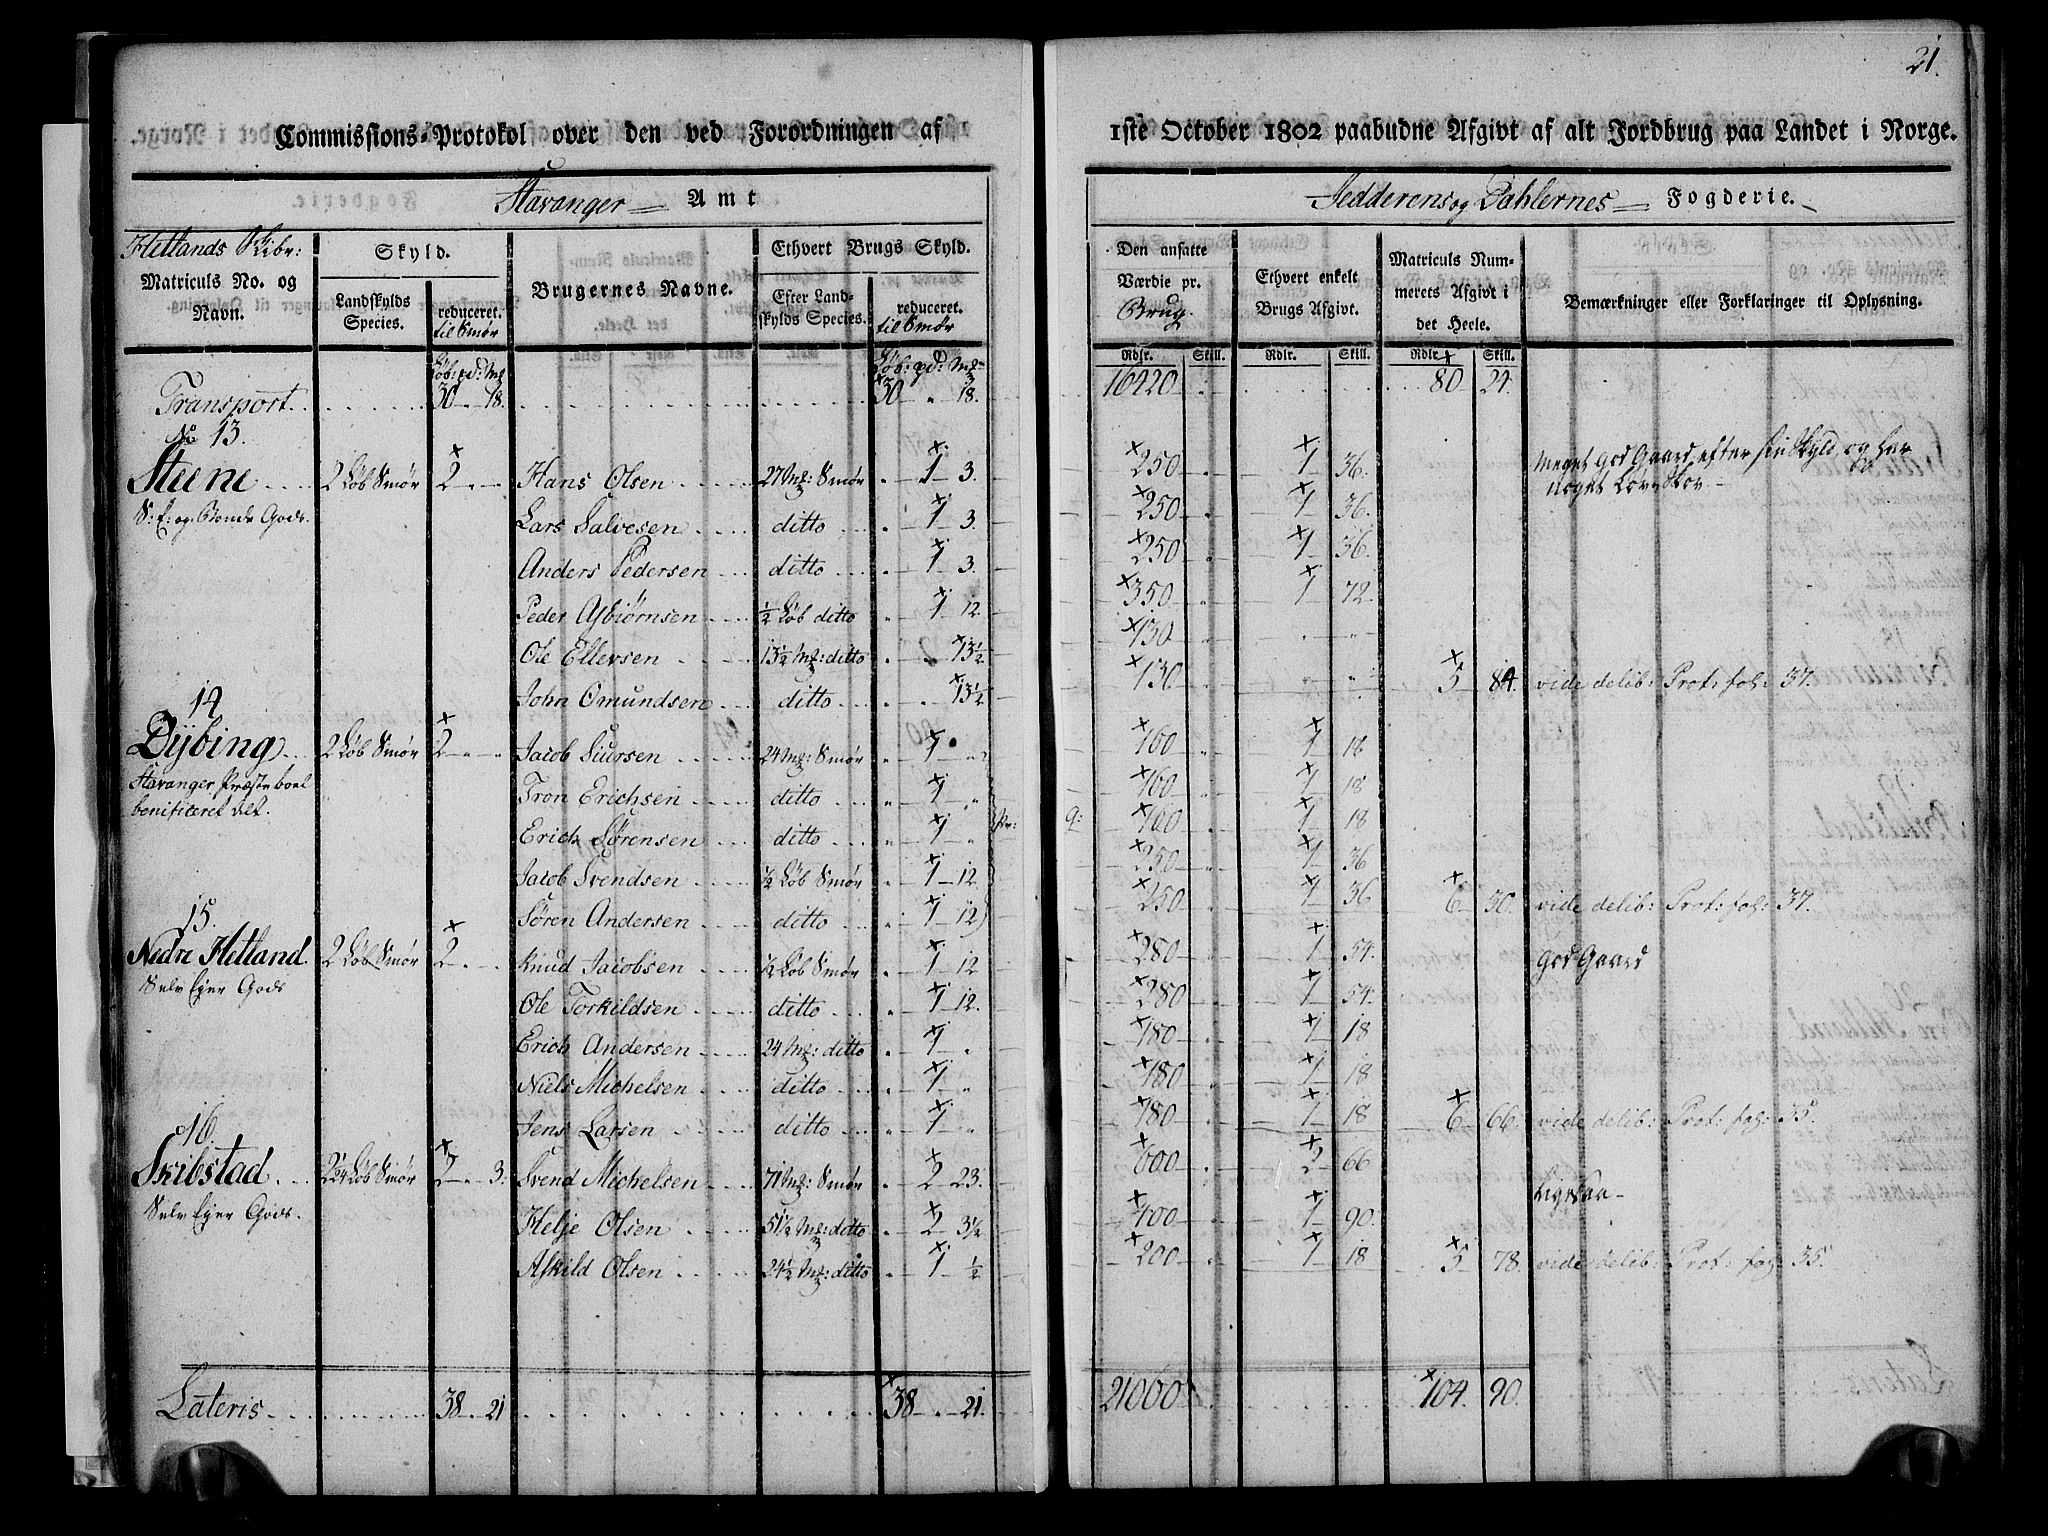 21.
Commissions-Protokol over den ved Forordningen af 1ste October 1802 paabudne Afgivt af alt Jordbrug paa Landet i Norge.
Stavanger Amt Jedderens og Dahlernes Fogderie.
Hetlands Skibr:
Matriculs No. og Navn.
Skyld.
Landskylds Species.
reduceret. til Smør
Brugernes Navne.
Ethvert Brugs Skyld.
Efter Landskylds Species.
reduceret. til Smør
Den ansatte Værdie pr. Brug.
Ethvert enkelt Brugs Afgivt.
Matriculs Nummerets Afgivt i det Heele.
Bemærkninger eller Forklaringer til Oplysning.
Løb: pd: Mk Løb: pd: Mk Rdlr. Skill. Rdlr. Skill. Rdlr. Skill.
Transport 30 " 18. 30 " 18. 16420 " 80 24.
No 13.
Steene 2 Løb Smør 2 " " Hans Olsen 27 Mk: Smør " 1 3. 250 " 1 36. Meget god Gaard efter sin Skyld og har
noget Løvskov
S: E: og Bonde Gods. Lars Salvesen ditto " 1 3. 250 " 1 36.
Anders Pedersen ditto " 1 3. 250 " 1 36.
Peder Asbiørnsen ½ Løb ditto " 1 12 350 " 1 72.
Ole Ellevsen 13½ Mk: ditto " " 13½ 130 " " "
John Omundsen ditto " " 13½ 130 " " " 5 84 vide delib: Prot: fol: 37.
14
Dybing 2 Løb Smør 2 " " Jacob Siursen 24 Mk: Smør " 1 " 160 " 1 18
Stavanger Præsteboel Tron Erichsen ditto " 1 " 160 " 1 18
benificeret dlt. Erich Sørensen ditto " 1 " 160 " 1 18
Jacob Svendsen ½ Løb Smør " 1 12 250 " 1 36
Søren Andersen ditto " 1 12 250 " 1 36 6 30 vide delib: Prot: fol: 37.
15.
Nedre Hetland 2 Løb Smør 2 " " Knud Jacobsen ½ Løb Smør " 1 12 280 " 1 54. God Gaard
Selv Ejer Gods Ole Torkildsen ditto " 1 12. 280 " 1 54.
Erich Andersen 24 Mk: ditto " 1 " 180 " 1 18
Niels Michelsen ditto " 1 " 180 " 1 18
Jens Larsen ditto " 1 " 180 " 1 18 6 66 vide delib: Prot: fol: 35.
16.
Skibstad Løb Smør 2 " 3. Svend Michelsen 71 Mk: Smør " 2 23. 600 " 2 66 Ligesaa
Selv Ejer Gods. Helje Olsen 51½ Mk: ditto " 2 3½ 400 " 1 90.
Askild Olsen 24½ Mk: ditto " 1 ½ 200 " 1 18 5 78. vide delib: Prot: fol: 35.
Lateris 38 " 21 38 " 21. 21000 104. 90.